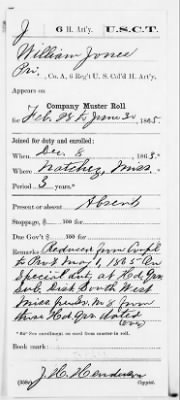 J | 6 H. Art'y. | U.S.C.T.
William Jones
Pvt., Co. A, 6 Reg't U. S. Col'd H. Art'y,
Appears on
Company Muster Roll
for Feb. 28 to June 30, 1865.
Joined for duty and enrolled:
When Dec. 8, 1863.
Where Natchez, Miss.
Period 3 years.*
Present or absent Absent
Stoppage, $ 100 for
Due Gov't $ 100 for
Remarks: Reduced from Corpl
to Pvt May 1, 1865 On
Special duty at Hd. Qrs
Sub. Dist. South West
Miss per S.O. No 8 from
those Hd. Qrs dated
* See enrollment on card from muster-in roll.
Book mark:
J. C. Henderson
(358g) Copyist.